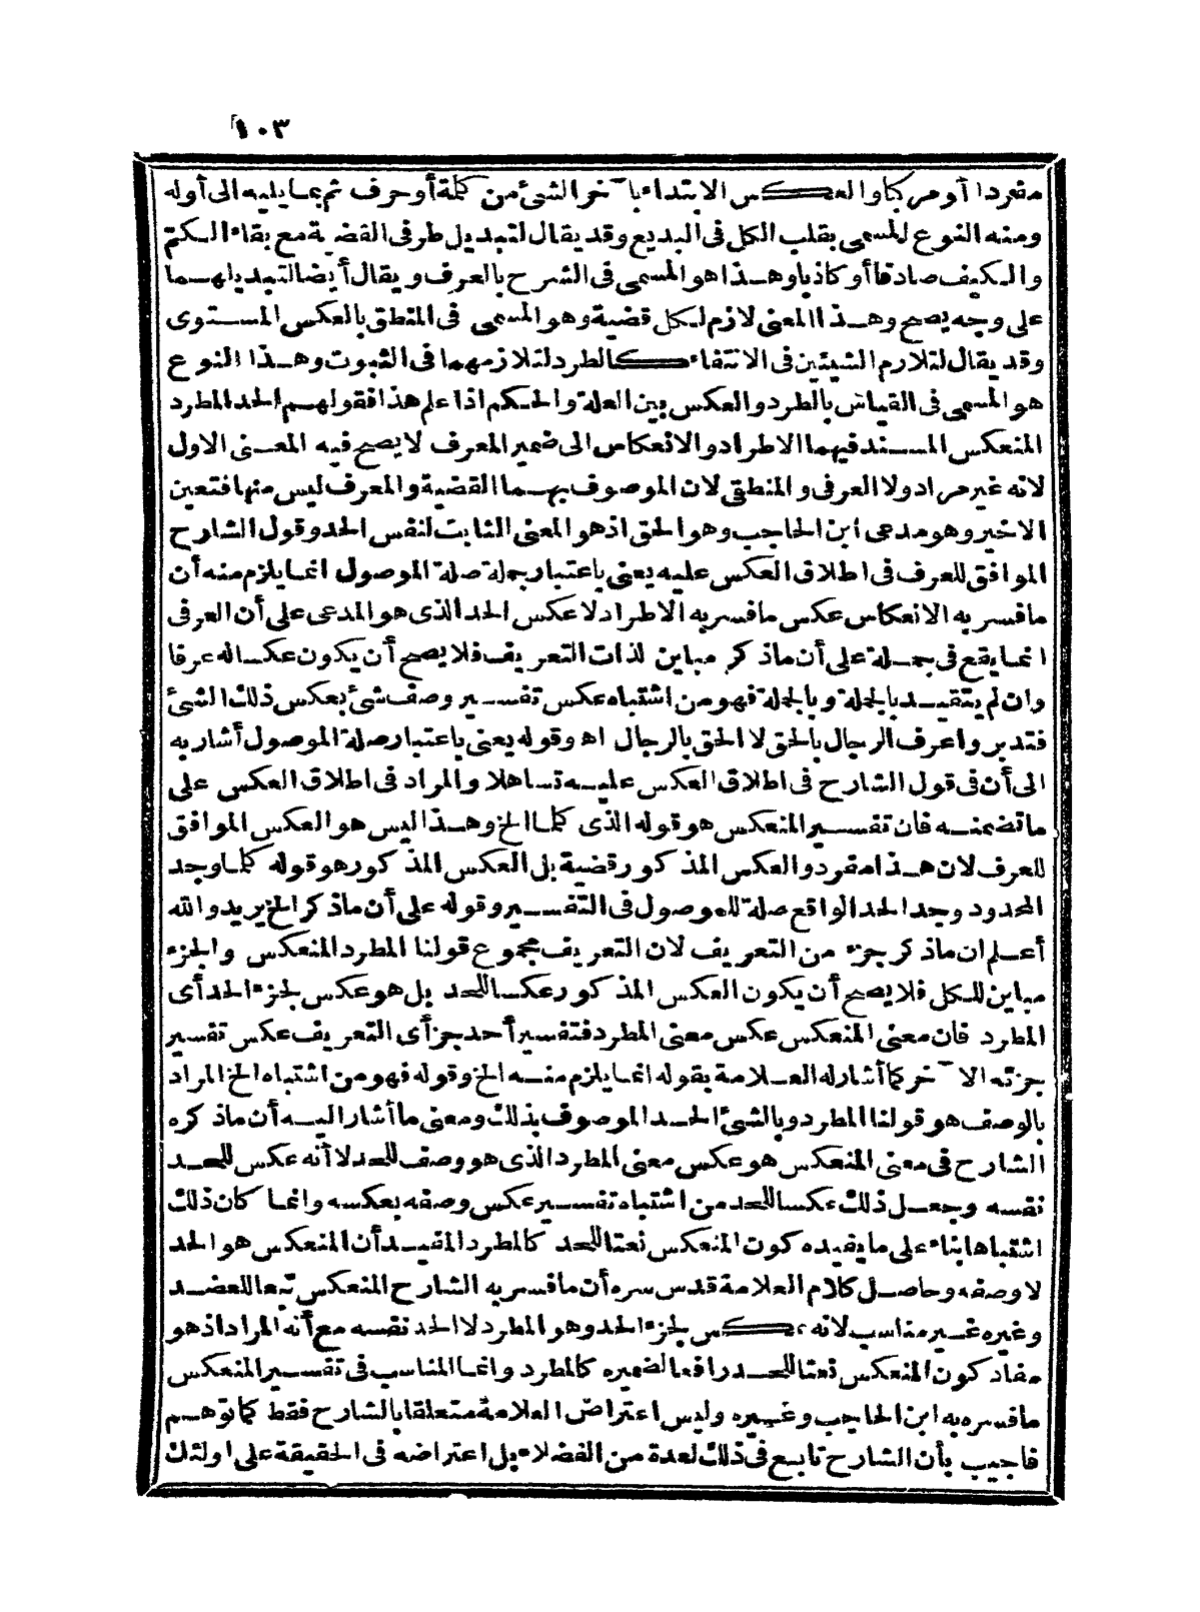 ١٠٣
مفردا أو مركبا والعكس الابتداء بآخر الشئ من كلمة أو حرف ثم بما يليه الى أوله
ومنه النوع المسمى بقلب الكل في البديع وقد يقال لتبديل طرفى القضية مع بقاء الكم
والكيف صادقا أو كاذبا وهذا هو المسمى فى الشرح بالعرف ويقال أيضا لتبديلهما
على وجه يصح وهذا المعنى لازم لكل قضية وهو المسمى فى المنطق بالعكس المستوى
وقد يقال لتلازم الشيئين فى الانتفاء كالطرد لتلازمهما فى الثبوت وهذا النوع
هو المسمى فى القياس بالطرد والعكس بين العلة والحكم اذا علم هذا فقولهم الحد المطرد
المنعكس المسند فيهما الاطراد والانعكاس الى ضمير المعرف لا يصح فيه المعنى الاول
لانه غير مراد ولا العرفى والمنطقى لان الموصوف بهما القضية والمعرف ليس منها فتعين
الاخير وهو مدعى ابن الحاجب وهو الحق اذ هو المعنى الثابت لنفس الحد وقول الشارح
الموافق للعرف فى اطلاق العكس عليه يعنى باعتبار جملة صلة الموصول انما يلزم منه أن
ما فسر به الانعكاس عكس ما فسر به الاطراد لا عكس الحد الذى هو المدعى على أن العرفى
انما يقع فى جملة على أن ما ذكر مباين لذات التعريف فلا يصح أن يكون عكسا له عرفا
وان لم يتقيد بالجملة وبالجملة فهو من اشتباه عكس تفسير وصف شئ بعكس ذلك الشئ
فتدبر واعرف الرجال بالحق لا الحق بالرجال اه وقوله يعنى باعتبار صلة الموصول أشار به
الى أن فى قول الشارح فى اطلاق العكس عليه تساهلا والمراد فى اطلاق العكس على
ما تضمنه فان تفسير المنعكس هو قوله الذى كلما الخ وهذا ليس هو العكس الموافق
للعرف لان هذا مفرد والعكس المذكور قضية بل العكس المذكور هو قوله كلما وجد
المحدود وجد الحد الواقع صلة للموصول فى التفسير وقوله على أن ما ذكر الخ يريد والله
أعلم ان ما ذكر جزء من التعريف لان التعريف مجموع قولنا المطرد المنعكس والجزء
مباين للكل فلا يصح أن يكون العكس المذكور عكسا للحد بل هو عكس لجزء الحد أى
المطرد فان معنى المنعكس عكس معنى المطرد فتفسير أحد جزأى التعريف عكس تفسير
جزئه الآخر كما أشار له العلامة بقوله انما يلزم منه الخ وقوله فهو من اشتباه الخ المراد
بالوصف هو قولنا المطرد وبالشئ الحد الموصوف بذلك ومعنى ما أشار اليه أن ما ذكره
الشارح فى معنى المنعكس هو عكس معنى المطرد الذى هو وصف للحد لا أنه عكس للحد
نفسه وجعل ذلك عكسا للحد من اشتباه تفسير عكس وصفه بعكسه وانما كان ذلك
اشتباها بناء على ما يفيده كون المنعكس نعتا للحد كالمطرد المقيد أن المنعكس هو الحد
لا وصفه وحاصل كلام العلامة قدس سره أن ما فسر به الشارح المنعكس تبعا للعضد
وغيره غير مناسب لانه عكس لجزء الحد وهو المطرد لا الحد نفسه مع أنه المراد اذ هو
مفاد كون المنعكس نعتا للحد رافعا لضميره كالمطرد وانما المناسب فى تفسير المنعكس
ما فسره به ابن الحاجب وغيره وليس اعتراض العلامة متعلقا بالشارح فقط كما توهم
فاجيب بأن الشارح تابع فى ذلك لعدة من الفضلاء بل اعتراضه فى الحقيقة على اولئك